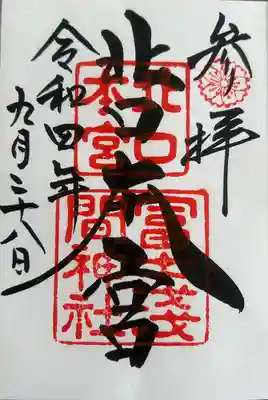 参拝
北口本宮
北口
本宮
冨士浅
間神社
令和四年
九月二十八日